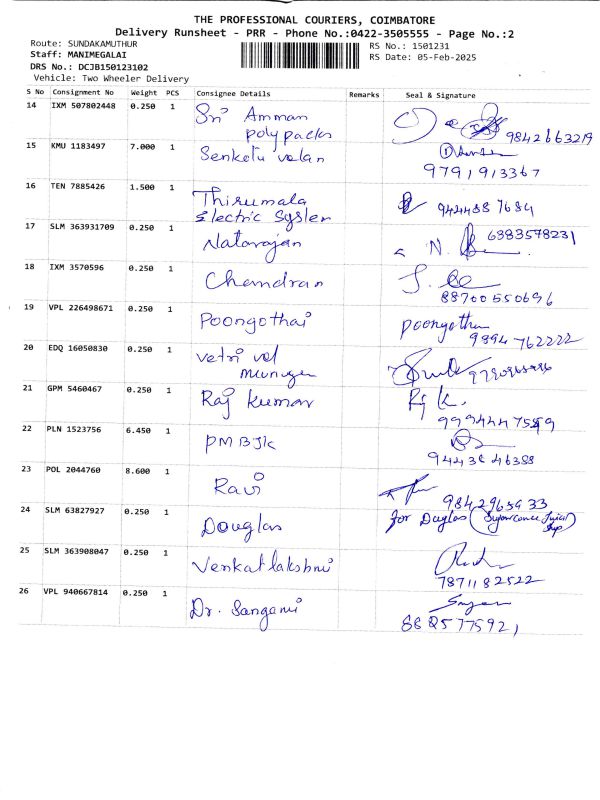 THE PROFESSIONAL COURIERS, COIMBATORE
Delivery Runsheet - PRR - Phone No.:0422-3505555 - Page No.:2
Route: SUNDAKAMUTHUR
RS No.: 1501231
Staff: MANIMEGALAI
RS Date: 05-Feb-2025
DRS No.: DCJB150123102
Vehicle: Two Wheeler Delivery
S No Consignment No Weight PCS Consignee Details Remarks Seal & Signature
14 IXM 507802448 0.250 1 Sri Amman
polypacks
9842663219
15 KMU 1183497 7.000 1 Senketu velan
9791913367
16 TEN 7885426 1.500 1 Thirumala
Electric System
9444387684
17 SLM 363931709 0.250 1 Natarajan N. 6383578231
18 IXM 3570596 0.250 1 Chandran
88700550696
19 VPL 226498671 0.250 1 Poongothai poongothai
9894762222
20 EDQ 16050830 0.250 1 vetri vel
murugan
21 GPM 5460467 0.250 1 Raj Kumar Rj K.
22 PLN 1523756 6.450 1 PMBJK
23 POL 2044760 8.600 1 Ravi
24 SLM 63827927 0.250 1 Douglas for Duglas
25 SLM 363908047 0.250 1 Venkatlakshmi
7871182522
26 VPL 940667814 0.250 1 Dr. Sangami
8825775921